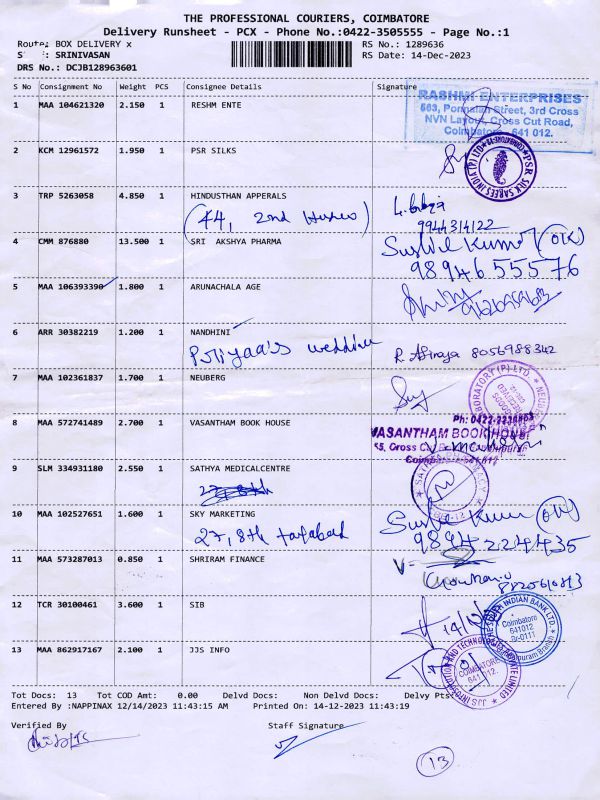 THE PROFESSIONAL COURIERS, COIMBATORE
Delivery Runsheet - PCX - Phone No.:0422-3505555 - Page No.:1
Route: BOX DELIVERY x
RS No.: 1289636
S : SRINIVASAN
RS Date: 14-Dec-2023
DRS No.: DCJB128963601
S No Consignment No Weight PCS Consignee Details Signature
1 MAA 104621320 2.150 1 RESHM ENTE
RASHMI ENTERPRISES
Street, 3rd Cross
NVN Layout, Cross Cut Road,
Coimbatore 641 012.
2 KCM 12961572 1.950 1 PSR SILKS
PSR SILK SAREES INDIA (P) LTD
3 TRP 5263058 4.850 1 HINDUSTHAN APPERALS
(44, 2nd )
9944314122
4 CMM 876880 13.500 1 SRI AKSHYA PHARMA
Sushil Kumar (OK)
98946 55576
5 MAA 106393390 1.800 1 ARUNACHALA AGE
6 ARR 30382219 1.200 1 NANDHINI
wedding
R. 8056988342
7 MAA 102361837 1.700 1 NEUBERG
LABORATORY (P) LTD.
8 MAA 572741489 2.700 1 VASANTHAM BOOK HOUSE
VASANTHAM BOOK HOUSE
9 SLM 334931180 2.550 1 SATHYA MEDICALCENTRE
10 MAA 102527651 1.600 1 SKY MARKETING
27, 8th tatabad
Sushil Kumar (OK)
9894224435
11 MAA 573287013 0.850 1 SHRIRAM FINANCE
12 TCR 30100461 3.600 1 SIB
INDIAN BANK LTD.
Coimbatore
641012
Br-0111
13 MAA 862917167 2.100 1 JJS INFO
COIMBATORE
641 012.
Tot Docs: 13 Tot COD Amt: 0.00 Delvd Docs: Non Delvd Docs: Delvy Pts:
Entered By :NAPPINAX 12/14/2023 11:43:15 AM Printed On: 14-12-2023 11:43:19
Verified By Staff Signature
13